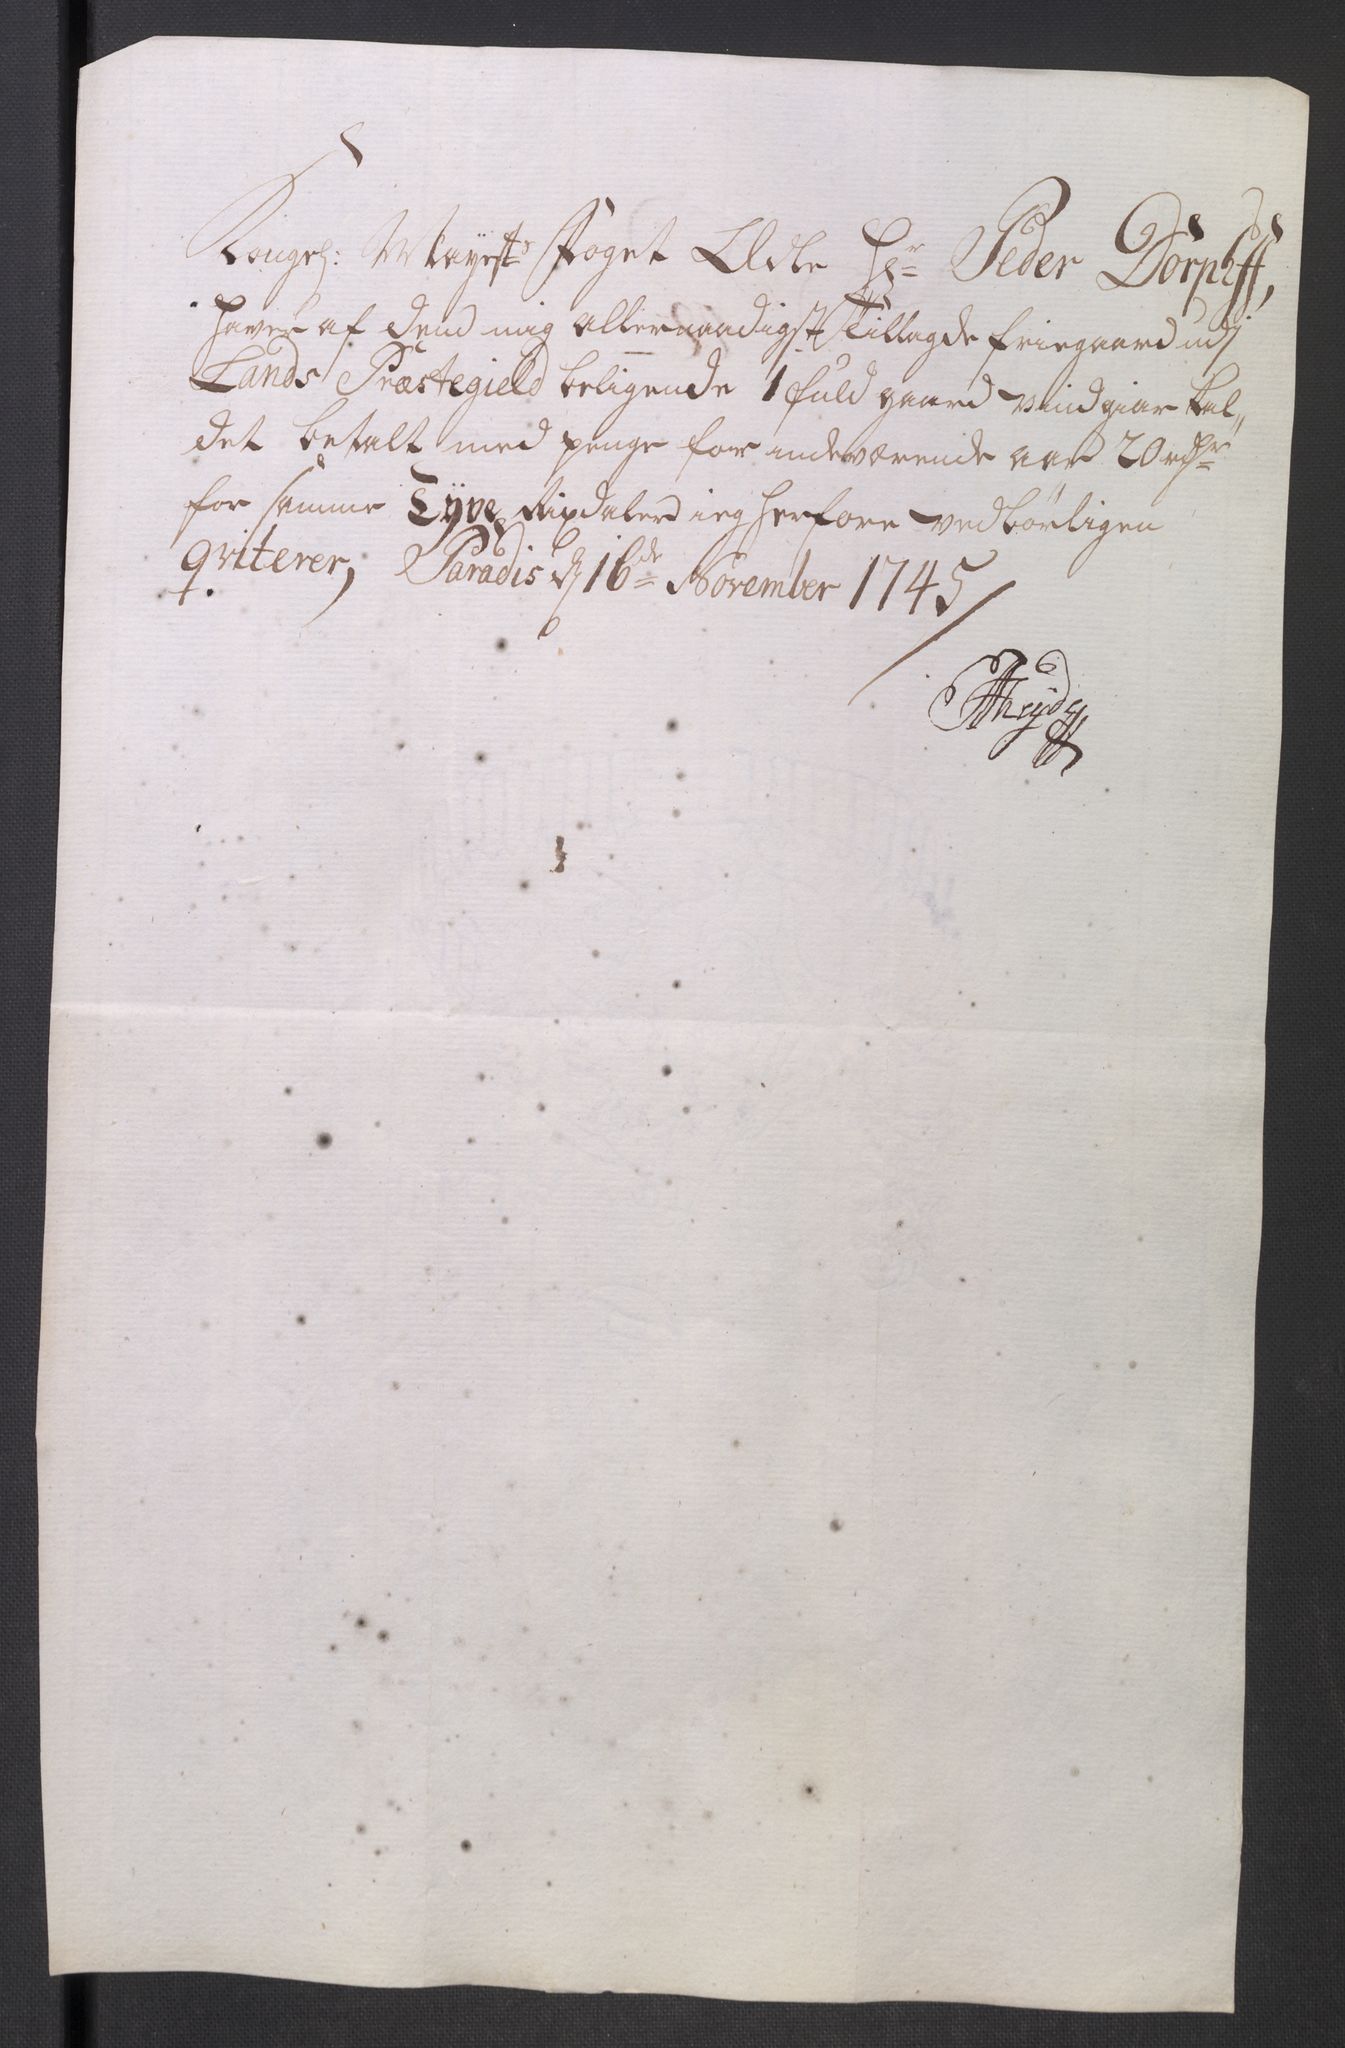 Kongel: Mayests Foget Edle Hr Peder Dorph,
haver af dend mig allernaadigst Tillagde friegaard udj
Lands Præstegield beligende 1 fuld gaard Vindgiar kal„
det betalt med penge for indeværende aar 20 rdr
for samme Tÿve Rixdaler ieg herfore vedbörligen
qviterer, Paradis d 16de November 1745